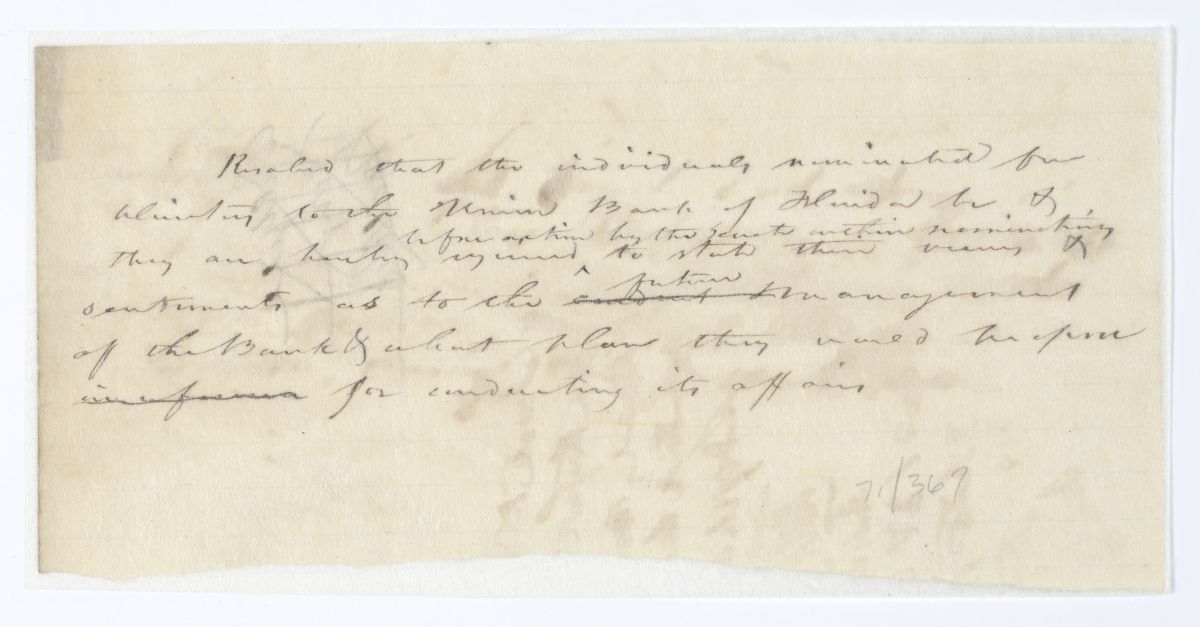 Resolved that the individuals nominated for
directors to the Union Bank of Florida be &
before action by the Senate on their nominations
they are hereby required to state their views &
future
sentiments as to the management
of the Bank & what plan they would propose
for conducting its affairs
71/367